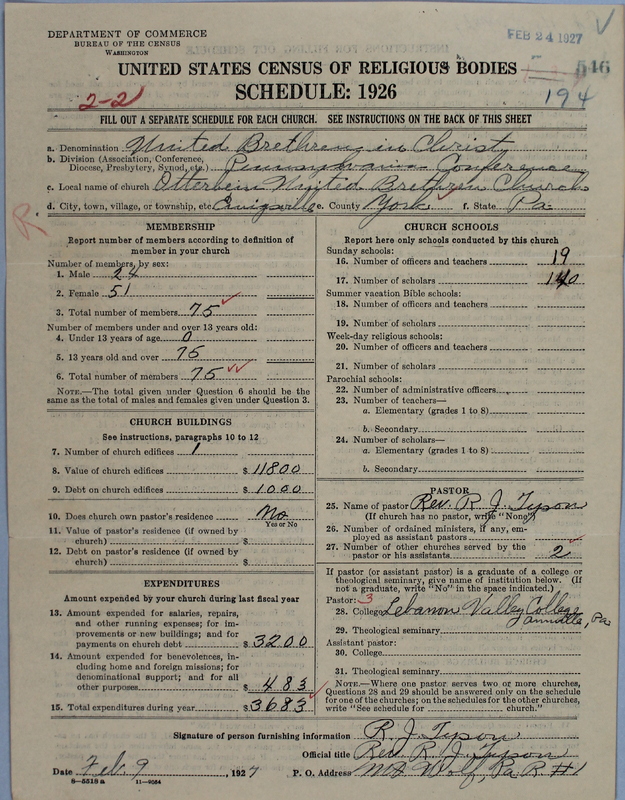 DEPARTMENT OF COMMERCE
BUREAU OF THE CENSUS
WASHINGTON
FEB 24 1927
UNITED STATES CENSUS OF RELIGIOUS BODIES
546
SCHEDULE: 1926
194
2-2
FILL OUT A SEPARATE SCHEDULE FOR EACH CHURCH. SEE INSTRUCTIONS ON THE BACK OF THIS SHEET
a. Denomination United Brethren in Christ
b. Division (Association, Conference, Diocese, Presbytery, Synod, etc.) Pennsylvania Conference
c. Local name of church Otterbein United Brethren Church
d. City, town, village, or township, etc. Craigsville e. County York f. State Pa.
R
MEMBERSHIP
Report number of members according to definition of
member in your church
Number of members, by sex:
1. Male 24
2. Female 51
3. Total number of members 75
Number of members under and over 13 years old:
4. Under 13 years of age 0
5. 13 years old and over 75
6. Total number of members 75
NOTE.—The total given under Question 6 should be
the same as the total of males and females given under Question 3.
CHURCH BUILDINGS
See instructions, paragraphs 10 to 12
7. Number of church edifices 1
8. Value of church edifices $ 11800
9. Debt on church edifices $ 1000
10. Does church own pastor's residence No
Yes or No
11. Value of pastor's residence (if owned by
church) $
12. Debt on pastor's residence (if owned by
church) $
EXPENDITURES
Amount expended by your church during last fiscal year
13. Amount expended for salaries, repairs,
and other running expenses; for im-
provements or new buildings; and for
payments on church debt $ 3200
14. Amount expended for benevolences, in-
cluding home and foreign missions; for
denominational support; and for all
other purposes $ 483
15. Total expenditures during year $ 3683
CHURCH SCHOOLS
Report here only schools conducted by this church
Sunday schools:
16. Number of officers and teachers 19
17. Number of scholars 140
Summer vacation Bible schools:
18. Number of officers and teachers
19. Number of scholars
Week-day religious schools:
20. Number of officers and teachers
21. Number of scholars
Parochial schools:
22. Number of administrative officers
23. Number of teachers—
a. Elementary (grades 1 to 8)
b. Secondary
24. Number of scholars—
a. Elementary (grades 1 to 8)
b. Secondary
PASTOR
25. Name of pastor Rev. R. J. Tyson
(If church has no pastor, write "None")
26. Number of ordained ministers, if any, em-
ployed as assistant pastors
27. Number of other churches served by the
pastor or his assistants 2
If pastor (or assistant pastor) is a graduate of a college or
theological seminary, give name of institution below. (If
not a graduate, write "No" in the space indicated.)
Pastor: 3
28. College Lebanon Valley College
Annville, Pa.
29. Theological seminary
Assistant pastor:
30. College
31. Theological seminary
NOTE.—Where one pastor serves two or more churches,
Questions 28 and 29 should be answered only on the schedule
for one of the churches; on the schedules for the other churches,
write "See schedule for church."
Signature of person furnishing information R. J. Tyson
Official title Rev. R. J. Tyson
Date Feb. 9, 1927 P. O. Address Mt Wolf, Pa R. #1
8—5518a 11—9054